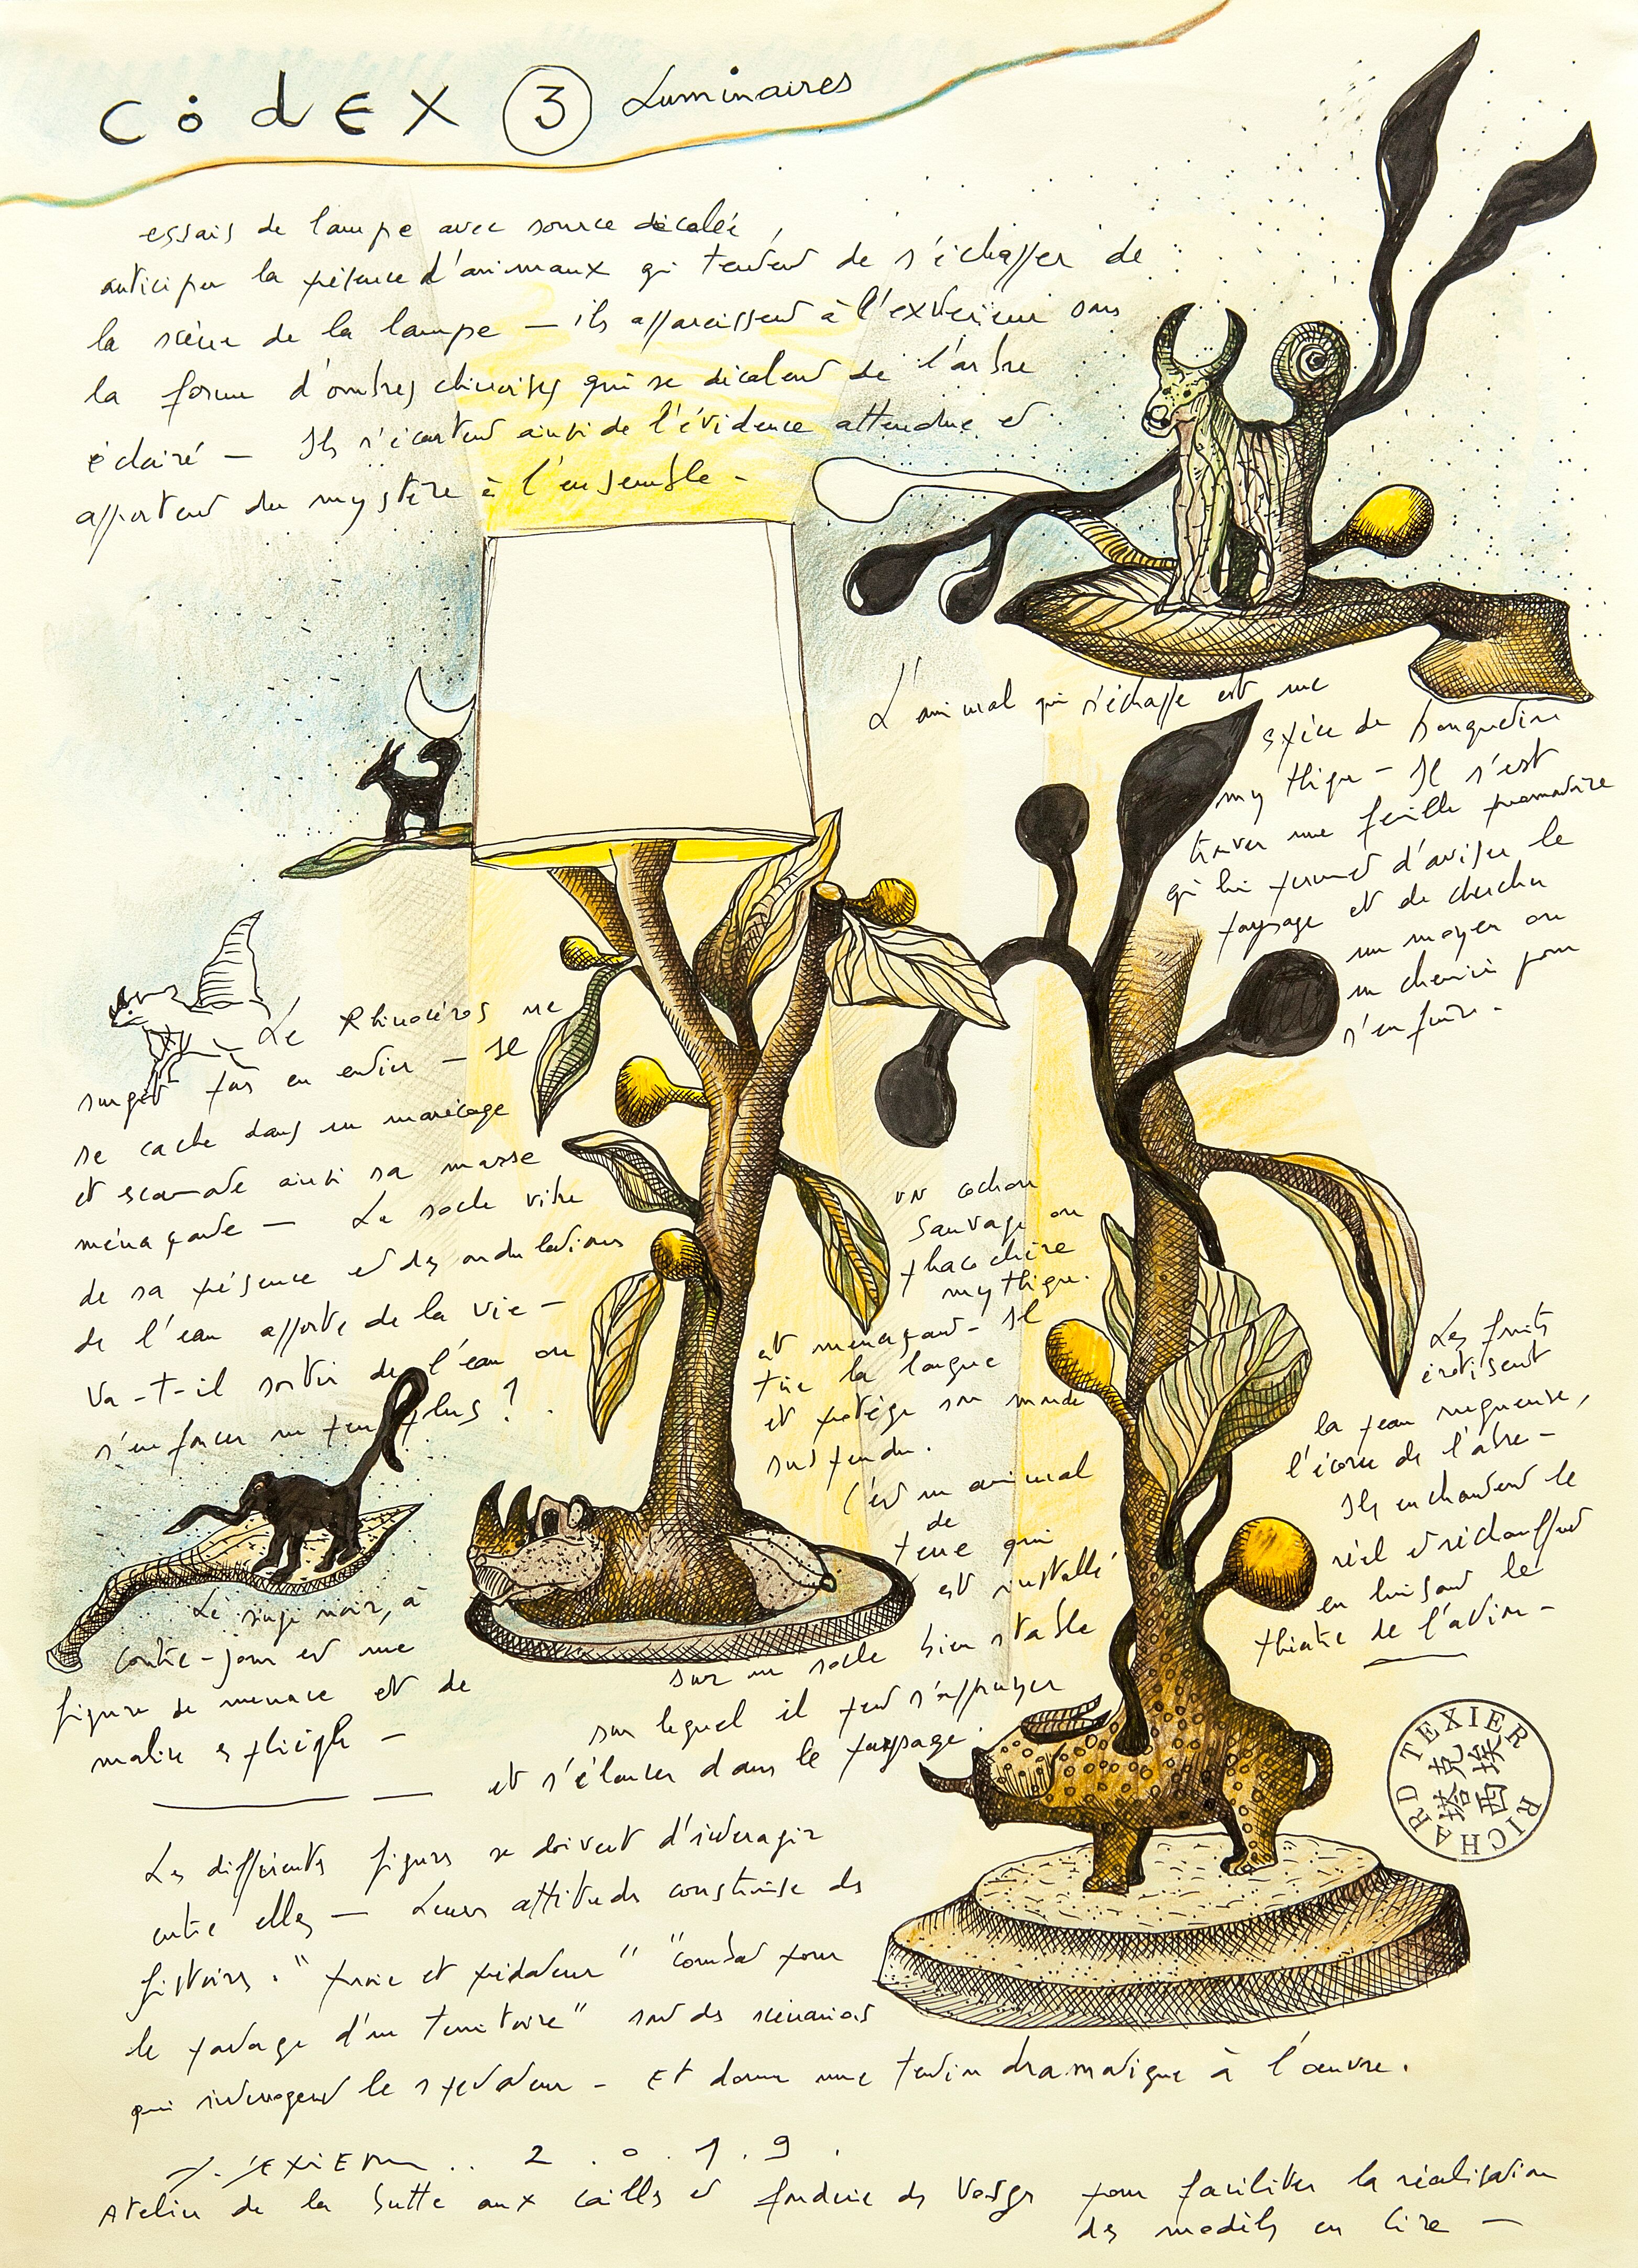 CODEX 3 Luminaires
essais de lampe avec source décalée,
anticiper la présence d'animaux qui tendent de s'échapper de
la scène de la lampe — ils apparaissent à l'extérieur sous
la forme d'ombres chinoises qui se décalent de l'arbre
éclairé — Ils s'écartent ainsi de l'évidence attendue et
apportent du mystère à l'ensemble -
L'animal qui s'échappe est une
espèce de bouquetin
mythique - Il s'est
trouver une feuille promontoire
qui lui permet d'aviser le
paysage et de chercher
un moyen ou
un chemin pour
s'enfuir.
Le Rhinocéros ne
surgit pas en entier - Il
se cache dans un marécage
et escamote ainsi sa masse
menaçante — Le socle vibre
de sa présence et des ondulations
de l'eau apporte de la vie -
Va-t-il sortir de l'eau ou
s'enfoncer un peu plus ?
un cochon
sauvage ou
phacochère
mythique.
est menaçant - Il
tire la langue
et protège son monde
suspendu.
C'est un animal
de
terre qui
est installé
sur un socle bien stable
sur lequel il peut s'appuyer
et s'élancer dans le paysage
Les fruits
érotisent
la peau rugueuse,
l'écorce de l'arbre -
Ils enchantent le
réel et réchauffent
en luisant le
théâtre de l'action -
Le singe noir, à
contre-jour est une
figure de menace et de
malice espiègle -
Les différents figures se doivent d'interagir
entre elles — Leurs attitudes construise des
histoires. "proie et prédateur" "combat pour
le partage d'un territoire" sont des scénarios
qui interrogent le spectateur - Et donne une tension dramatique à l'œuvre.
R. TEXIER .. 2.0.1.9.
Atelier de la butte aux cailles et fonderie des Vosges pour faciliter la réalisation
des modèles en cire —
RICHARD TEXIER
克埃
塔西